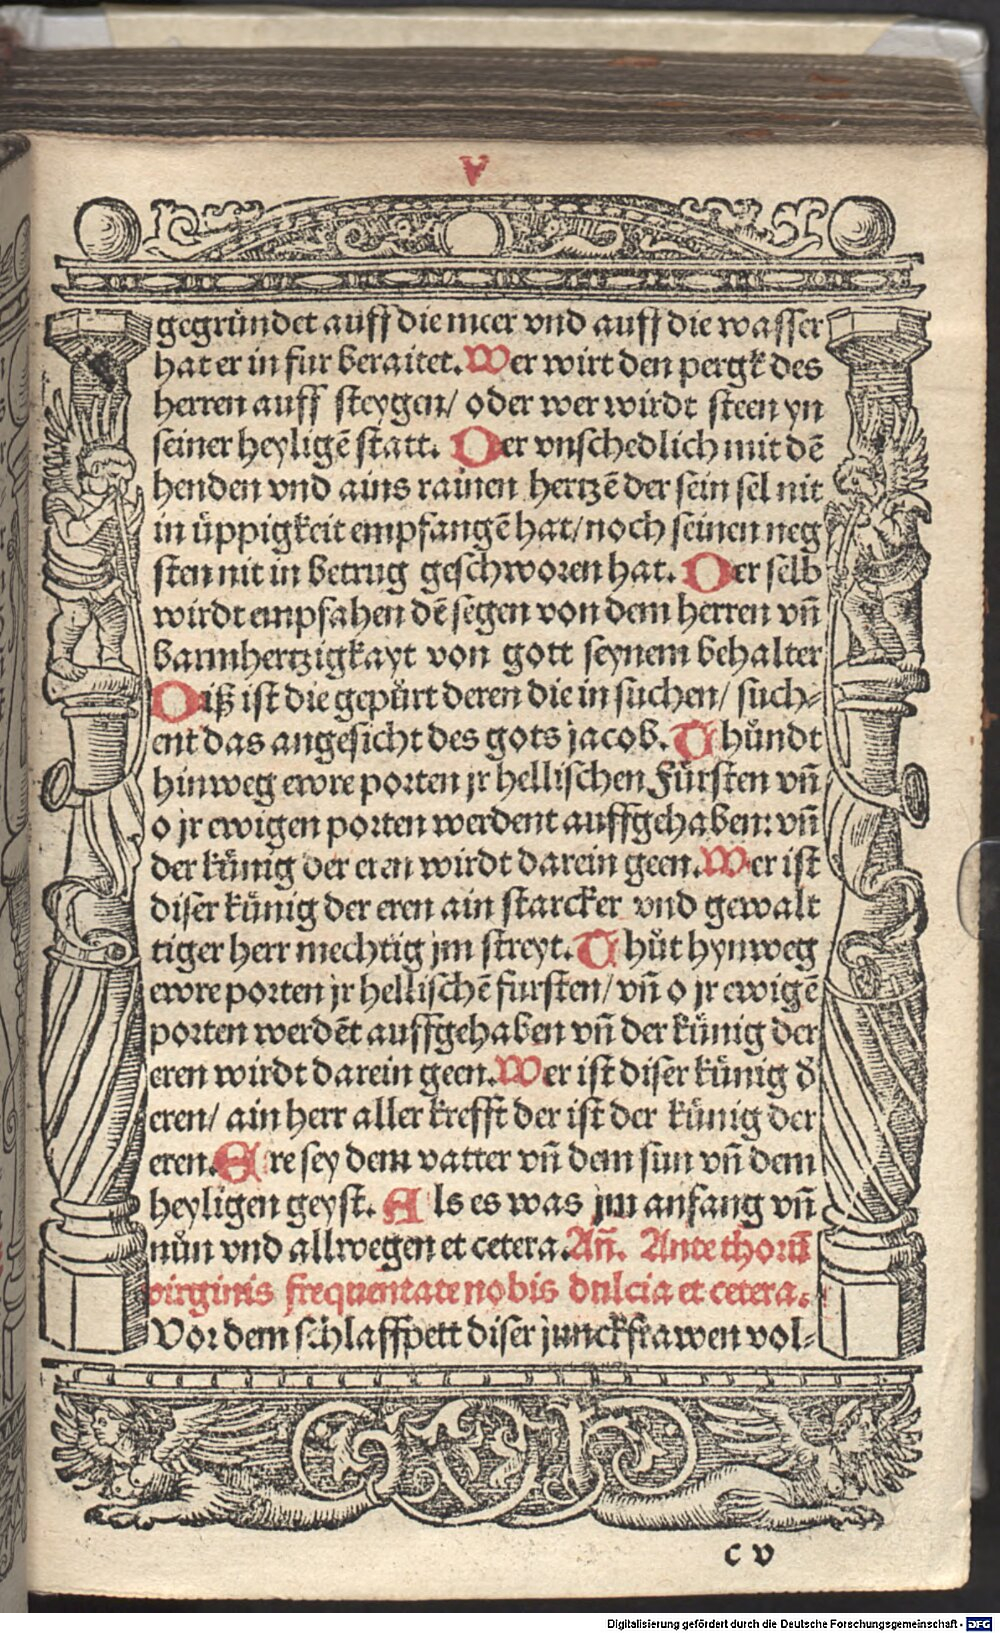 V
gegründet auff die meer vnd auff die wasser
hat er in fur beraitet. Wer wirt den pergk des
herren auff steygen/ oder wer wirdt steen yn
seiner heyligē statt. Der vnschedlich mit dē
henden vnd ains rainen hertzē der sein sel nit
in üppigkeit empfangē hat/ noch seinen neg
sten nit in betrug geschworen hat. Der selb
wirdt empfahen dē segen von dem herren vñ
barmhertzigkayt von gott seynem behalter
Diß ist die gepürt deren die in suchen/ such-
ent das angesicht des gots jacob. Thůndt
hinweg ewre porten jr hellischen Fürsten vñ
o jr ewigen porten werdent auffgehaben: vñ
der künig der eren wirdt darein geen. Wer ist
diser künig der eren ain starcker vnd gewalt
tiger herr mechtig jm streyt. Thůt hynweg
ewre porten jr hellischē fursten/ vñ o jr ewigē
porten werdēt auffgehaben vñ der künig der
eren wirdt darein geen. Wer ist diser künig d̕
eren/ ain herr aller krefft der ist der künig der
eren. Ere sey dem vatter vñ dem sun vñ dem
heyligen geyst. Als es was jm anfang vñ
nůn vnd allwegen et cetera. Añ. Ante thorū
virginis frequentate nobis dulcia et cetera.
Vor dem schlaffpett diser junckfrawen vol-
c v
Digitalisierung gefördert durch die Deutsche Forschungsgemeinschaft - DFG